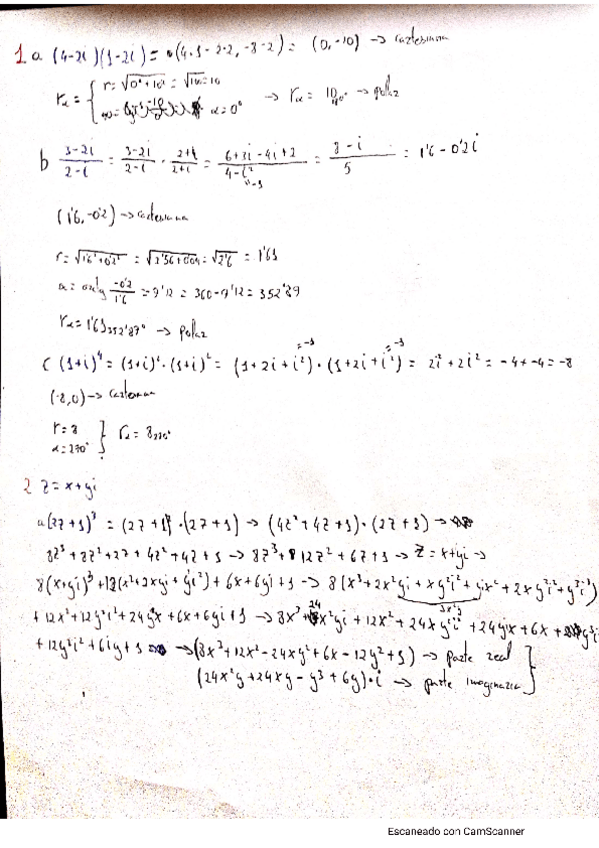 1. a (4-2i)(1-2i) = (4·1-2·2, -8-2) = (0,-10) → cartesiana
rα = { r = √0²+10² = √100 = 10
α = 0° → rα = 10 → polar
b 3-2i/2-i = 3-2i/2-i · 2+i/2+i = 6+3i-4i+2/4-i² = 8-i/5 = 1'6-0'2i
(1'6,-0'2) → cartesiana
r = √1'6²+0'2² = √2'56+0'04 = √2'6 = 1'61
α = -0'2/1'6 = 9'12 = 360-9'12 = 352'89
rα = 1'61 352'87° → polar
c (1+i)⁴ = (1+i)²·(1+i)² = (1+2i+i²)·(1+2i+i²) = 2i²+2i² = -4+-4 = -8
(-8,0) → cartesiana
r = 8
α = 270° } rα = 8 270°
2 z = x+yi
a (2z+1)³ = (2z+1)²·(2z+1) → (4z²+4z+1)·(2z+1) →
8z³+8z²+2z+4z²+4z+1 → 8z³+12z²+6z+1 → z = x+yi →
8(x+yi)³+12(x²+2xyi+yi²)+6x+6yi+1 → 8(x³+2x²yi+xy²i²+yix²+2xy²i²+y³i³)
+12x²+12y²i²+24yx+6x+6yi+1 → 8x³+24x²yi+12x²+24xy²i²+24yix+6x+
+12y²i²+6iy+1 → (8x³+12x²-24xy²+6x-12y²+1) → parte real
(24x²y+24xy-y³+6y)·i → parte imaginaria
Escaneado con CamScanner